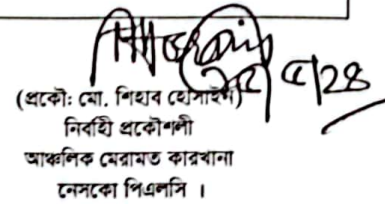 (প্রকৌ: মো. শিহাব হোসাইন)
নির্বাহী প্রকৌশলী
আঞ্চলিক মেরামত কারখানা
নেসকো পিএলসি ।